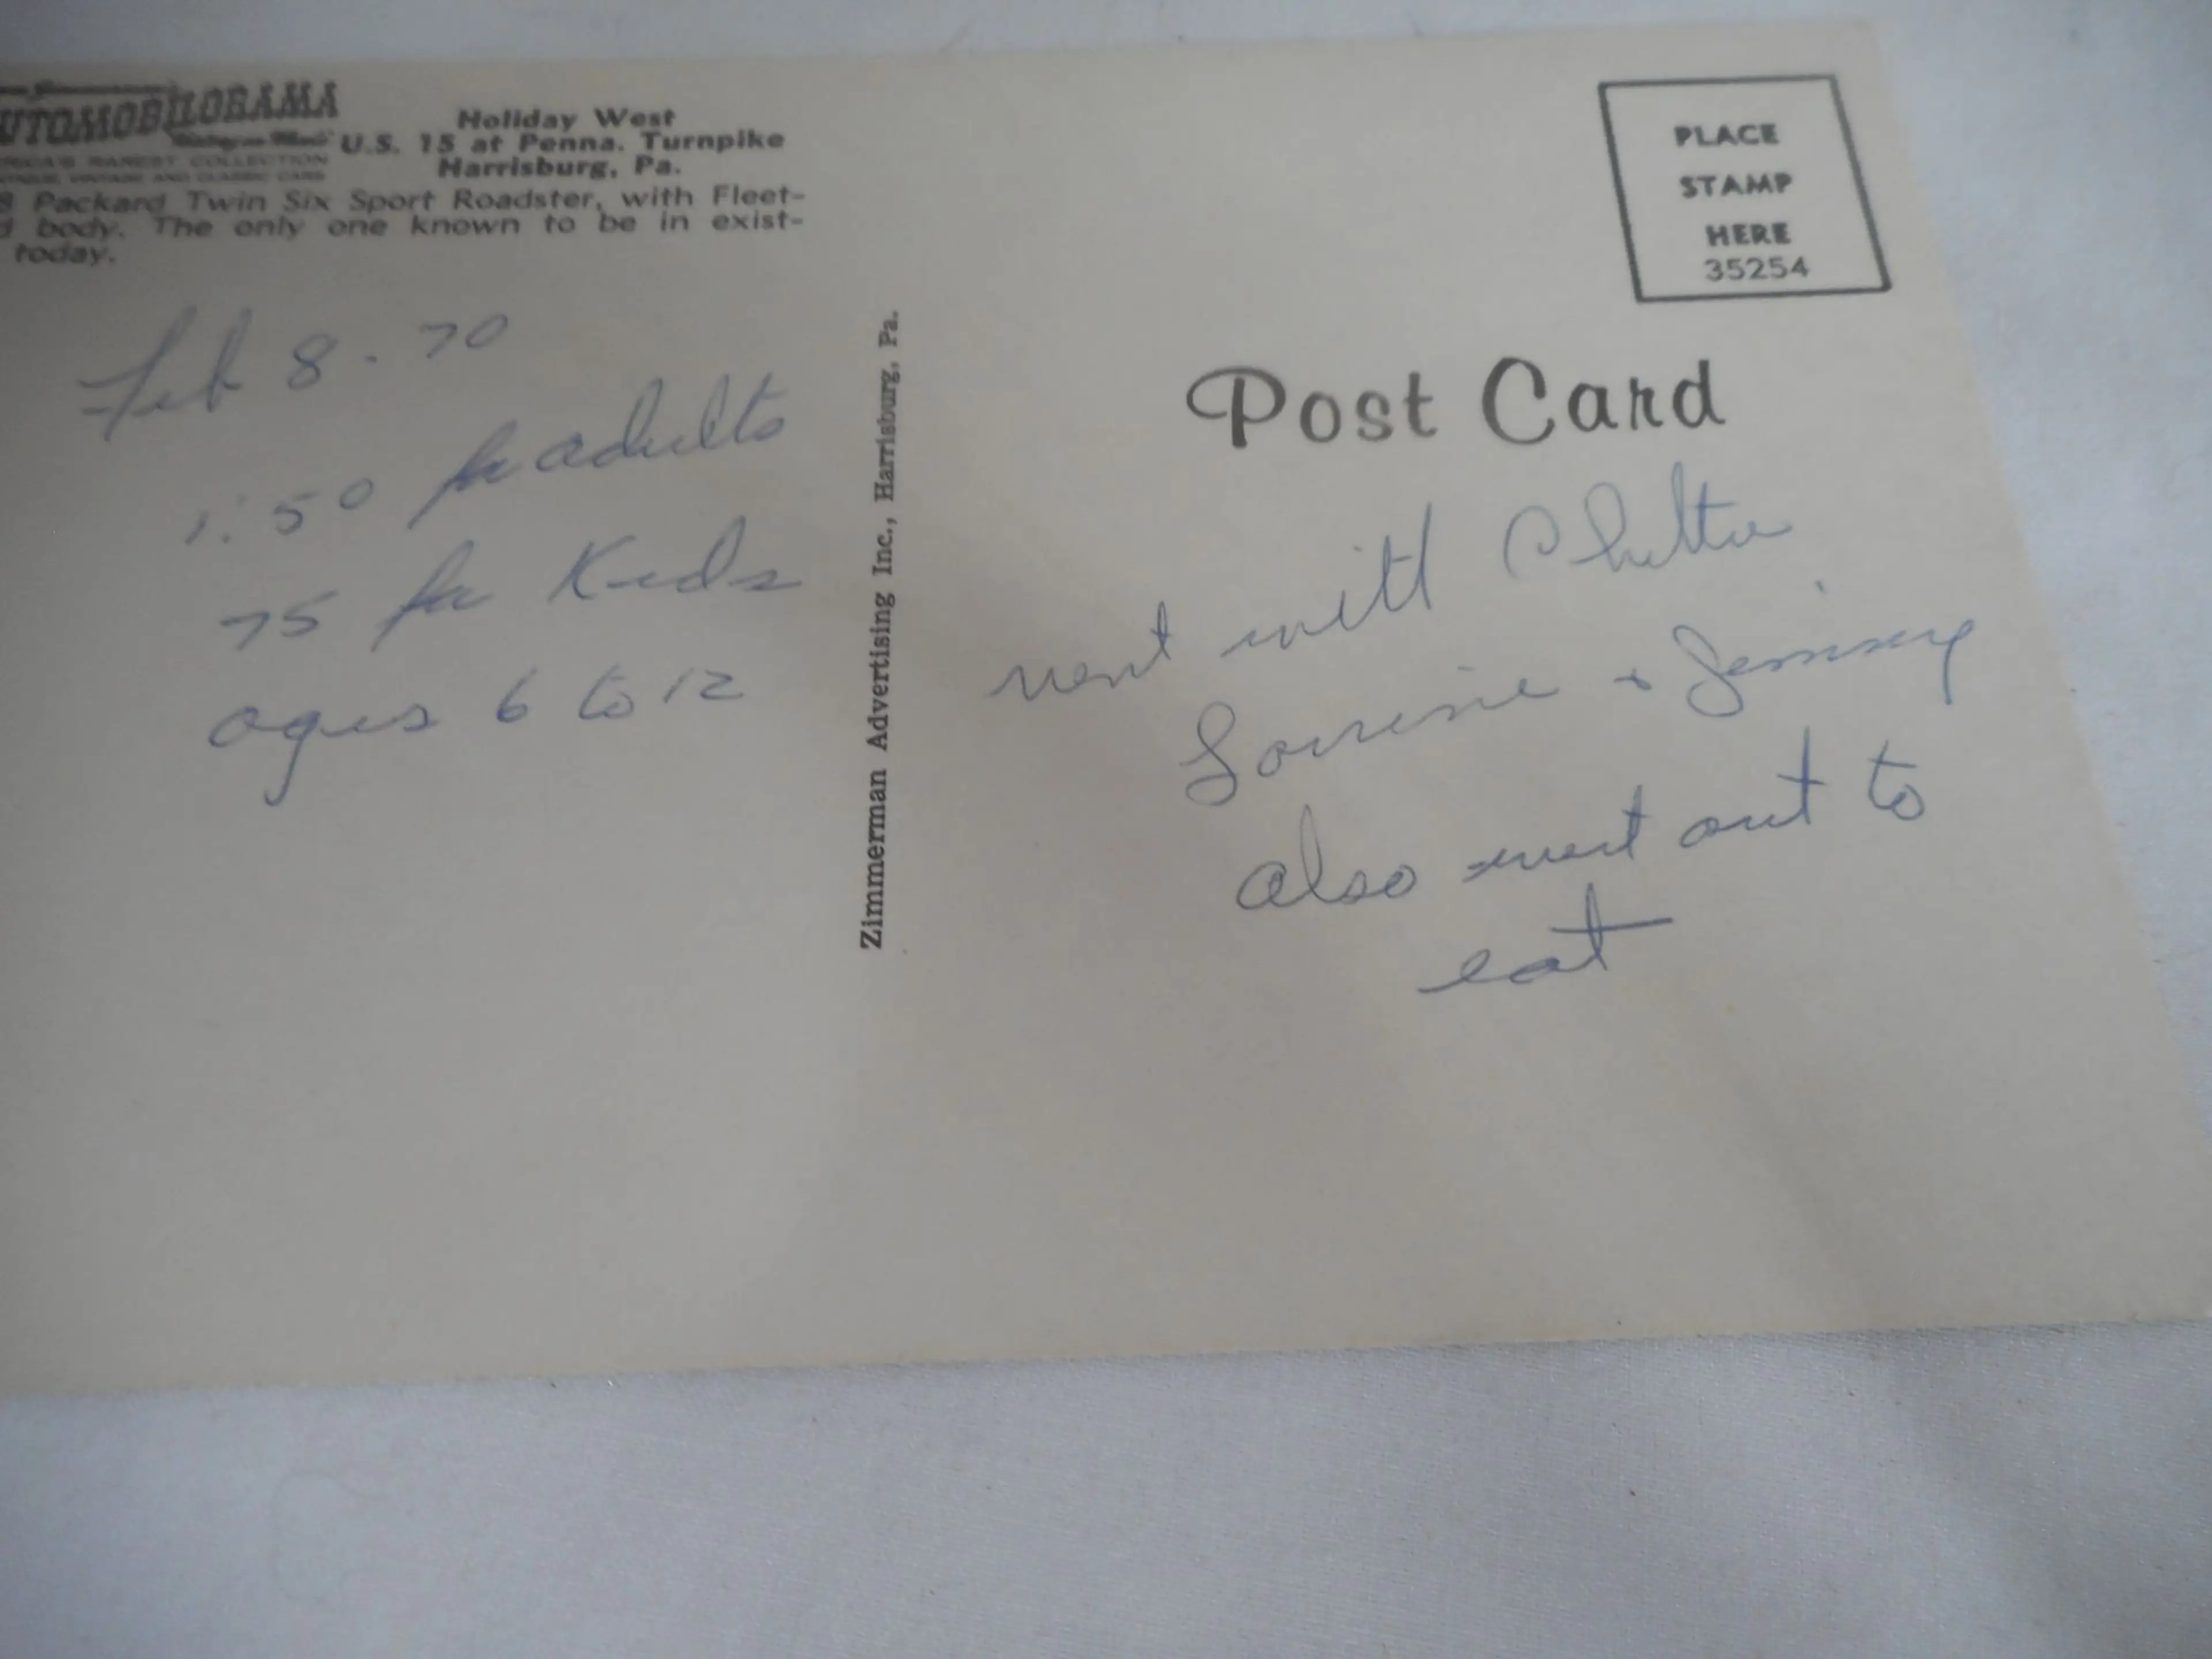 UTOMOBILORAMA
Holiday West
U.S. 15 at Penna. Turnpike
Harrisburg, Pa.
RICA'S RAREST COLLECTION
TIQUE, VINTAGE AND CLASSIC CARS
8 Packard Twin Six Sport Roadster, with Fleet-
d body. The only one known to be in exist-
today.
Feb 8 - 70
1:50 for adults
75 for Kids
ages 6 to 12
Zimmerman Advertising Inc., Harrisburg, Pa.
PLACE
STAMP
HERE
35254
Post Card
went with
+
also went out to
eat